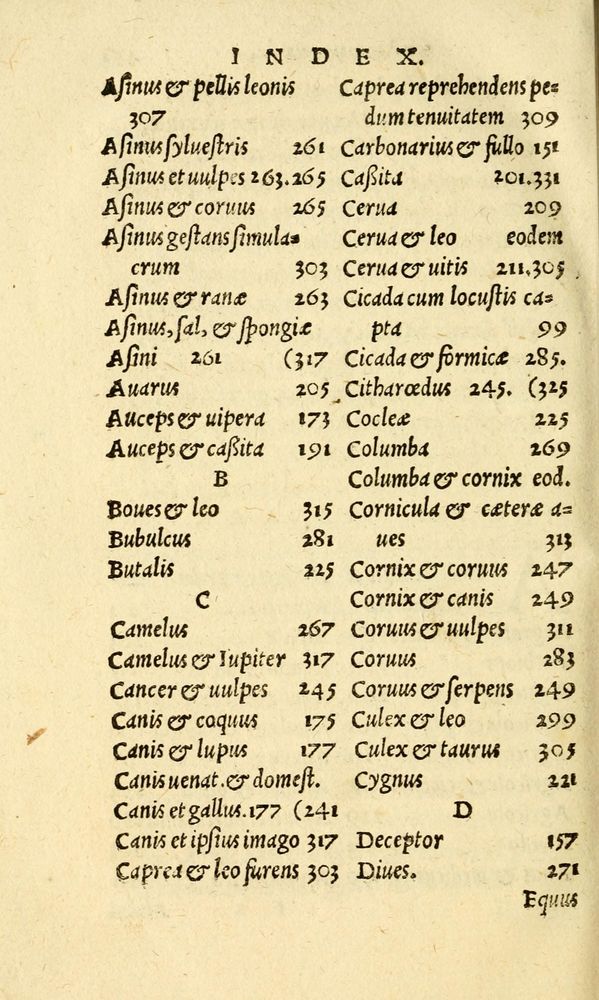 INDEX.
Aſinus & pellis leonis
307
Aſinus ſylueſtris 261
Aſinus et uulpes 263.265
Aſinus & coruus 265
Aſinus geſtans ſimula=
crum 303
Aſinus & ranæ 263
Aſinus, ſal, & ſpongiæ
Aſini 261 (317
Auarus 205
Auceps & uipera 173
Auceps & caßita 191
B
Boues & leo 315
Bubulcus 281
Butalis 225
C
Camelus 267
Camelus & Iupiter 317
Cancer & uulpes 245
Canis & coquus 175
Canis & lupus 177
Canis uenat. & domeſt.
Canis et gallus. 177 (241
Canis et ipſius imago 317
Caprea & leo furens 303
Caprea reprehendens pe=
dum tenuitatem 309
Carbonarius & fullo 151
Caßita 201.331
Cerua 209
Cerua & leo eodem
Cerua & uitis 211.305
Cicada cum locuſtis ca=
pta 99
Cicada & formicæ 285.
Citharœdus 245. (325
Cocleæ 225
Columba 269
Columba & cornix eod.
Cornicula & cæteræ a=
ues 313
Cornix & coruus 247
Cornix & canis 249
Coruus & uulpes 311
Coruus 283
Coruus & ſerpens 249
Culex & leo 299
Culex & taurus 305
Cygnus 221
D
Deceptor 157
Diues. 271
Equus